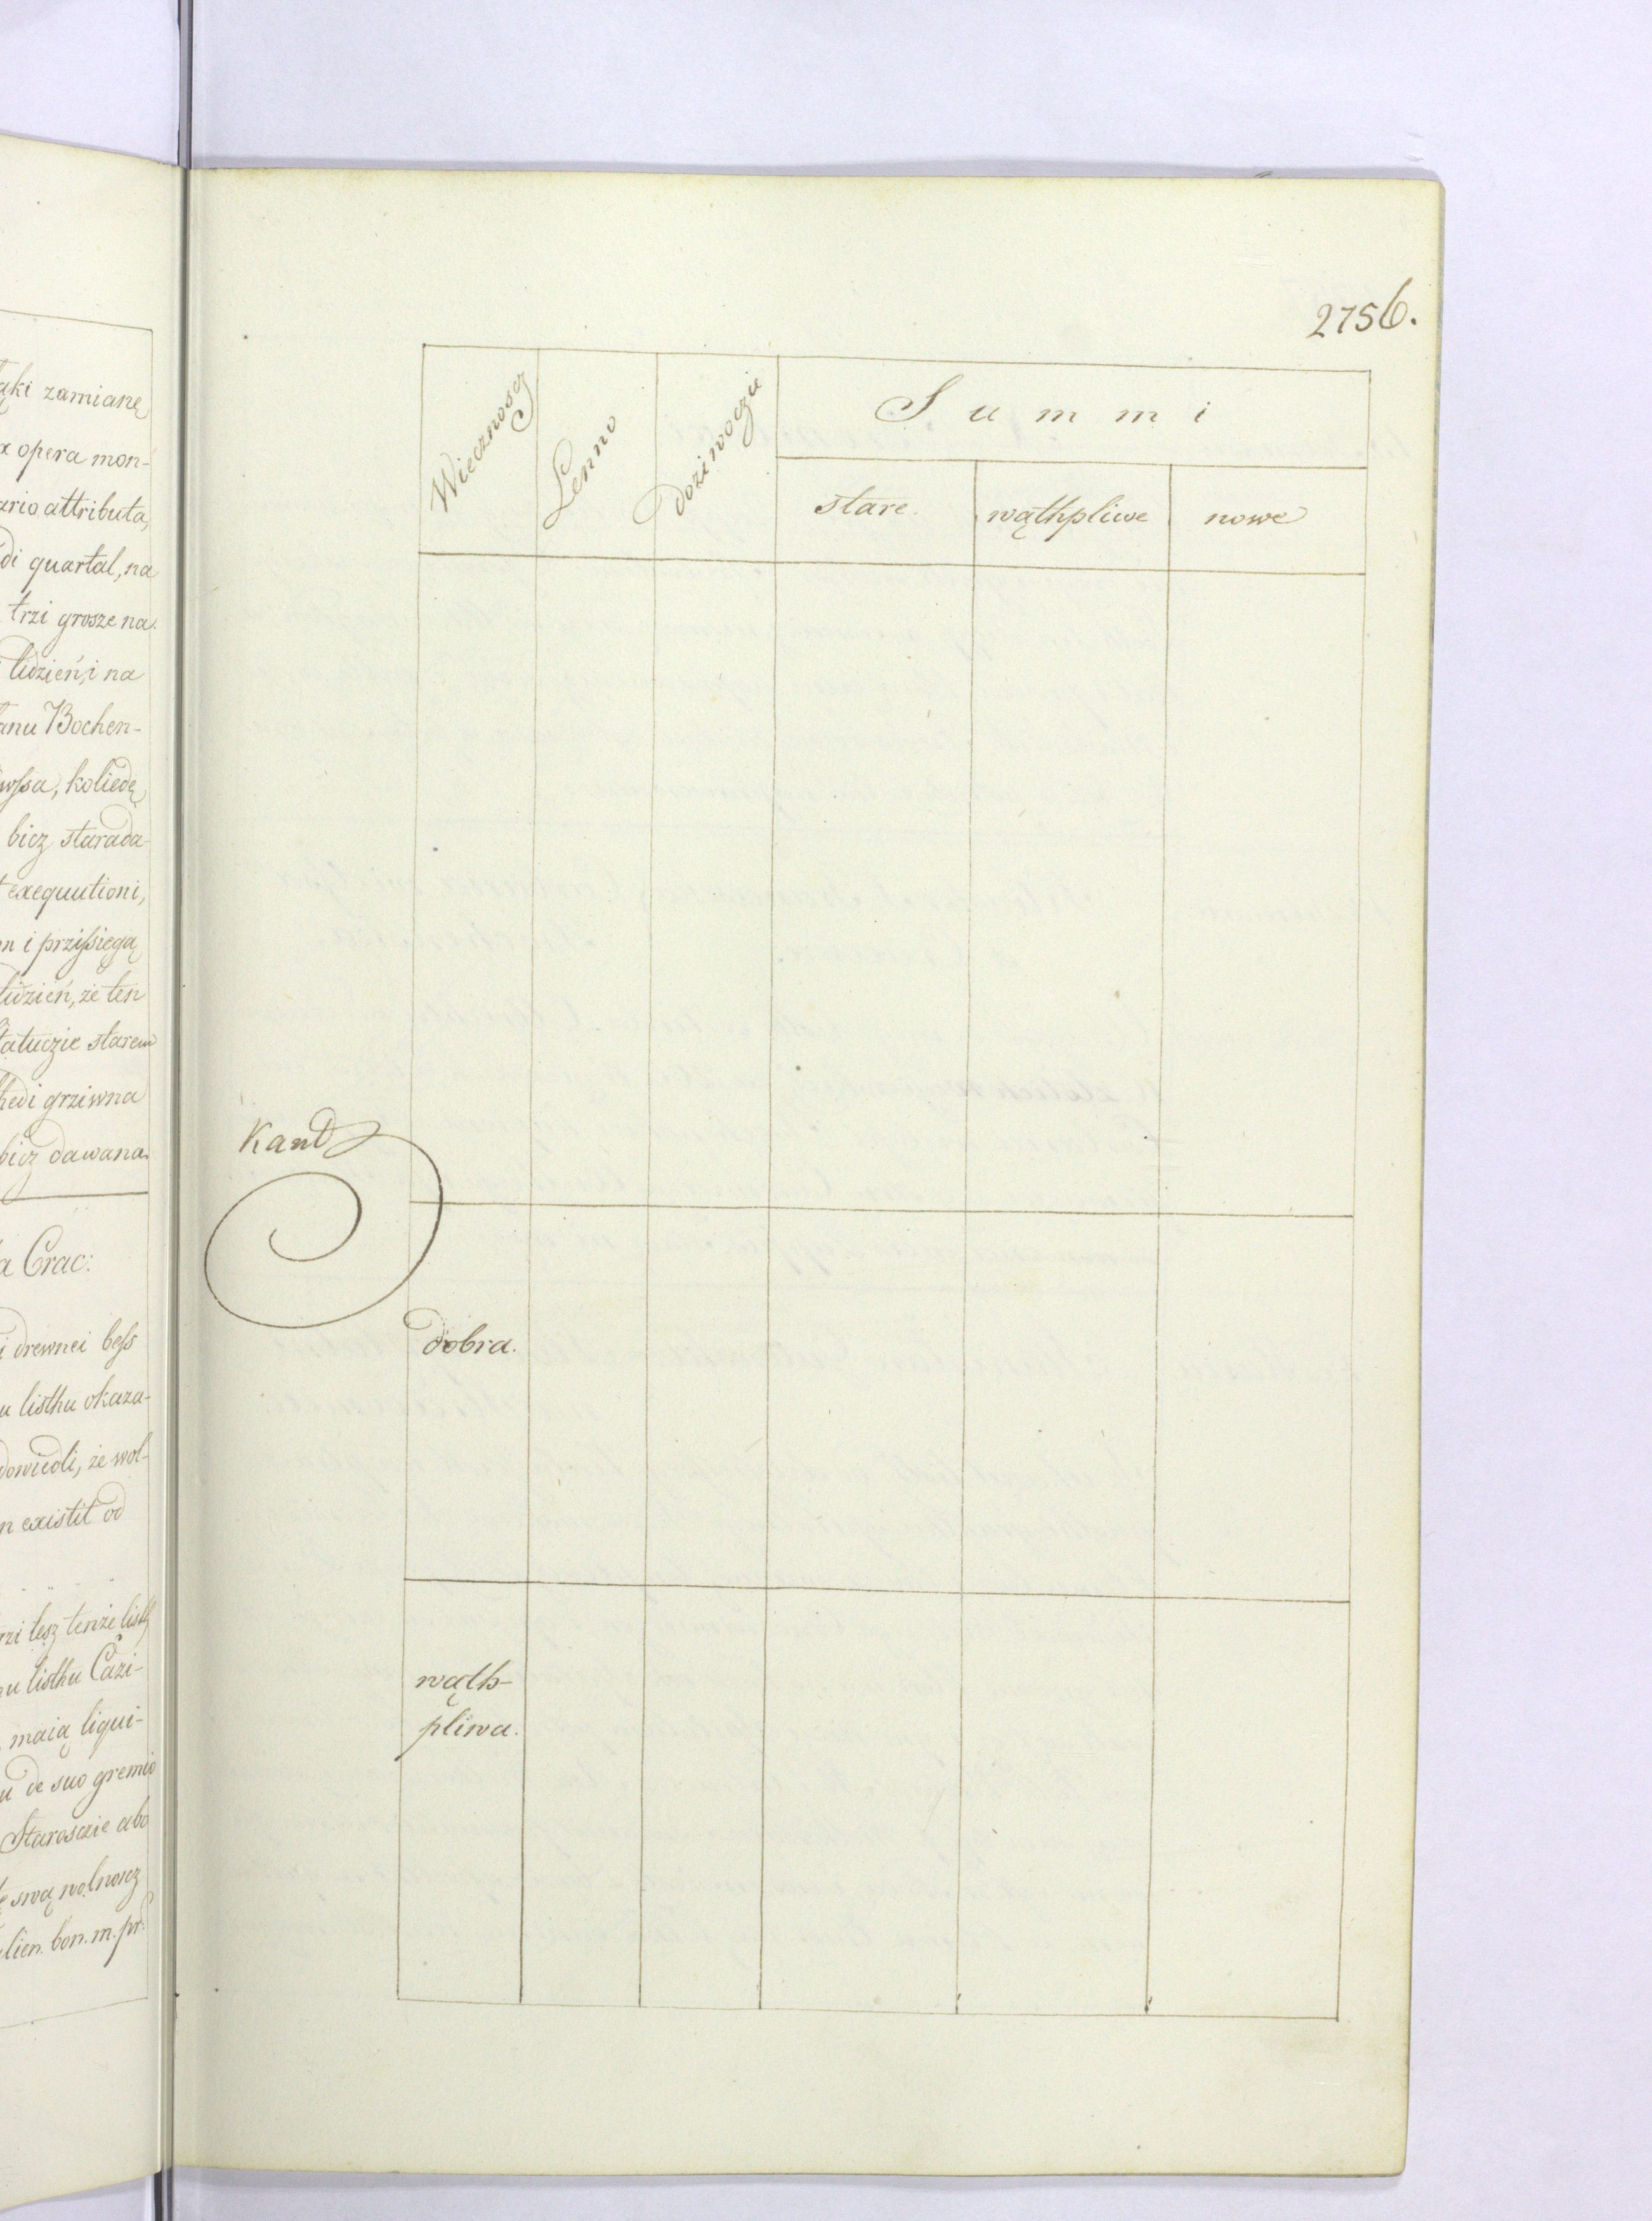 ąki zamianę
opera mon-
ario attributa,
di quartal, na
trzi grosze na
tidzień, i na
anu Bochen-
wssa, koliedę
bicz starada-
exequutioni,
m i przissięgą
tidzień, że ten
tatuczie starem
kedi grziwna
bicz dawana.
a Crac:
i drewnei bess
u listhu okaza-
dowiedli, że wol-
n existit od
rzi tesz tenże listh
nu listhu Cazi-
maią liqui-
u de suo gremio
Starosczie abo
swą wolnoscz
lien. bon. m. pr.
2756.
Wiecznoscz
Lenno
doziwoczie
Summi
stare.
wąthpliwe
nowe
Kand
dobra.
wąth-
pliwa.